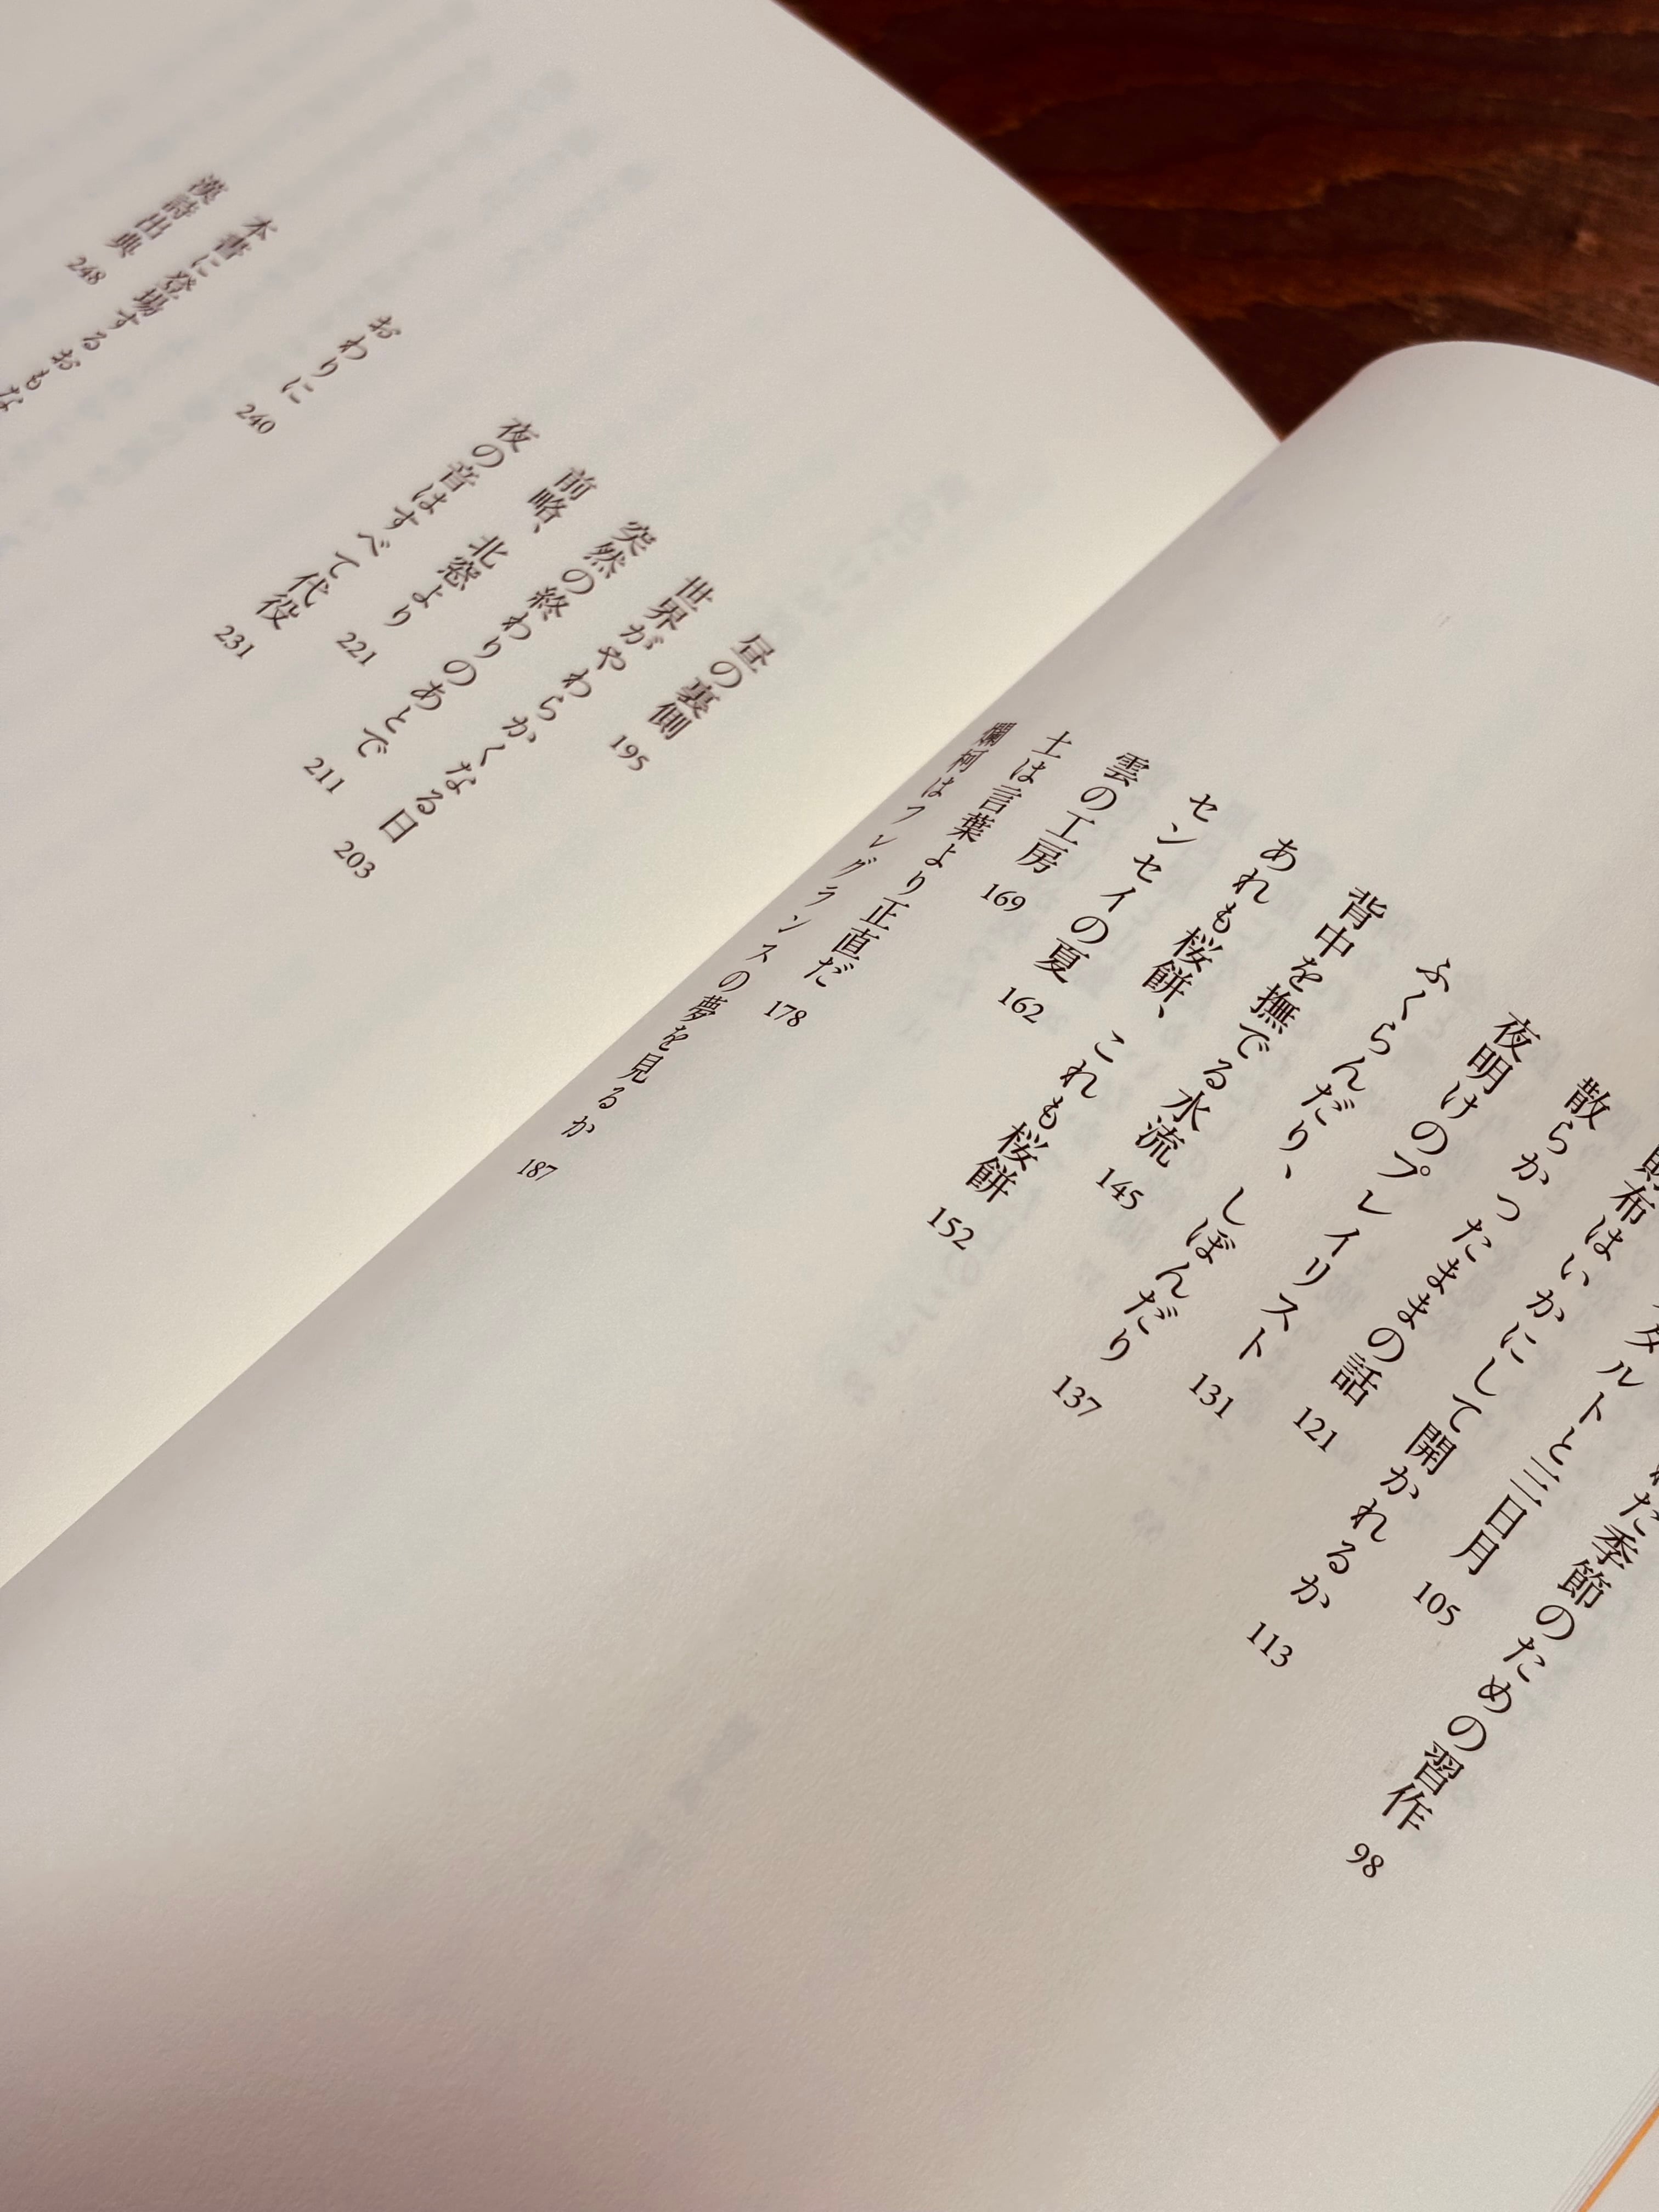 た季節のための習作 98
タルトと三日月 105
財布はいかにして開かれるか 113
散らかったままの話 121
夜明けのプレイリスト 131
ふくらんだり、しぼんだり 137
背中を撫でる水流 145
あれも桜餅、これも桜餅 152
センセイの夏 162
雲の工房 169
土は言葉より正直だ 178
爛柯はフレグランスの夢を見るか 187
昼の裏側 195
世界がやわらかくなる日 203
突然の終わりのあとで 211
前略、北窓より 221
夜の音はすべて代役 231
おわりに 240
本書に登場するおもな
漢詩出典 248